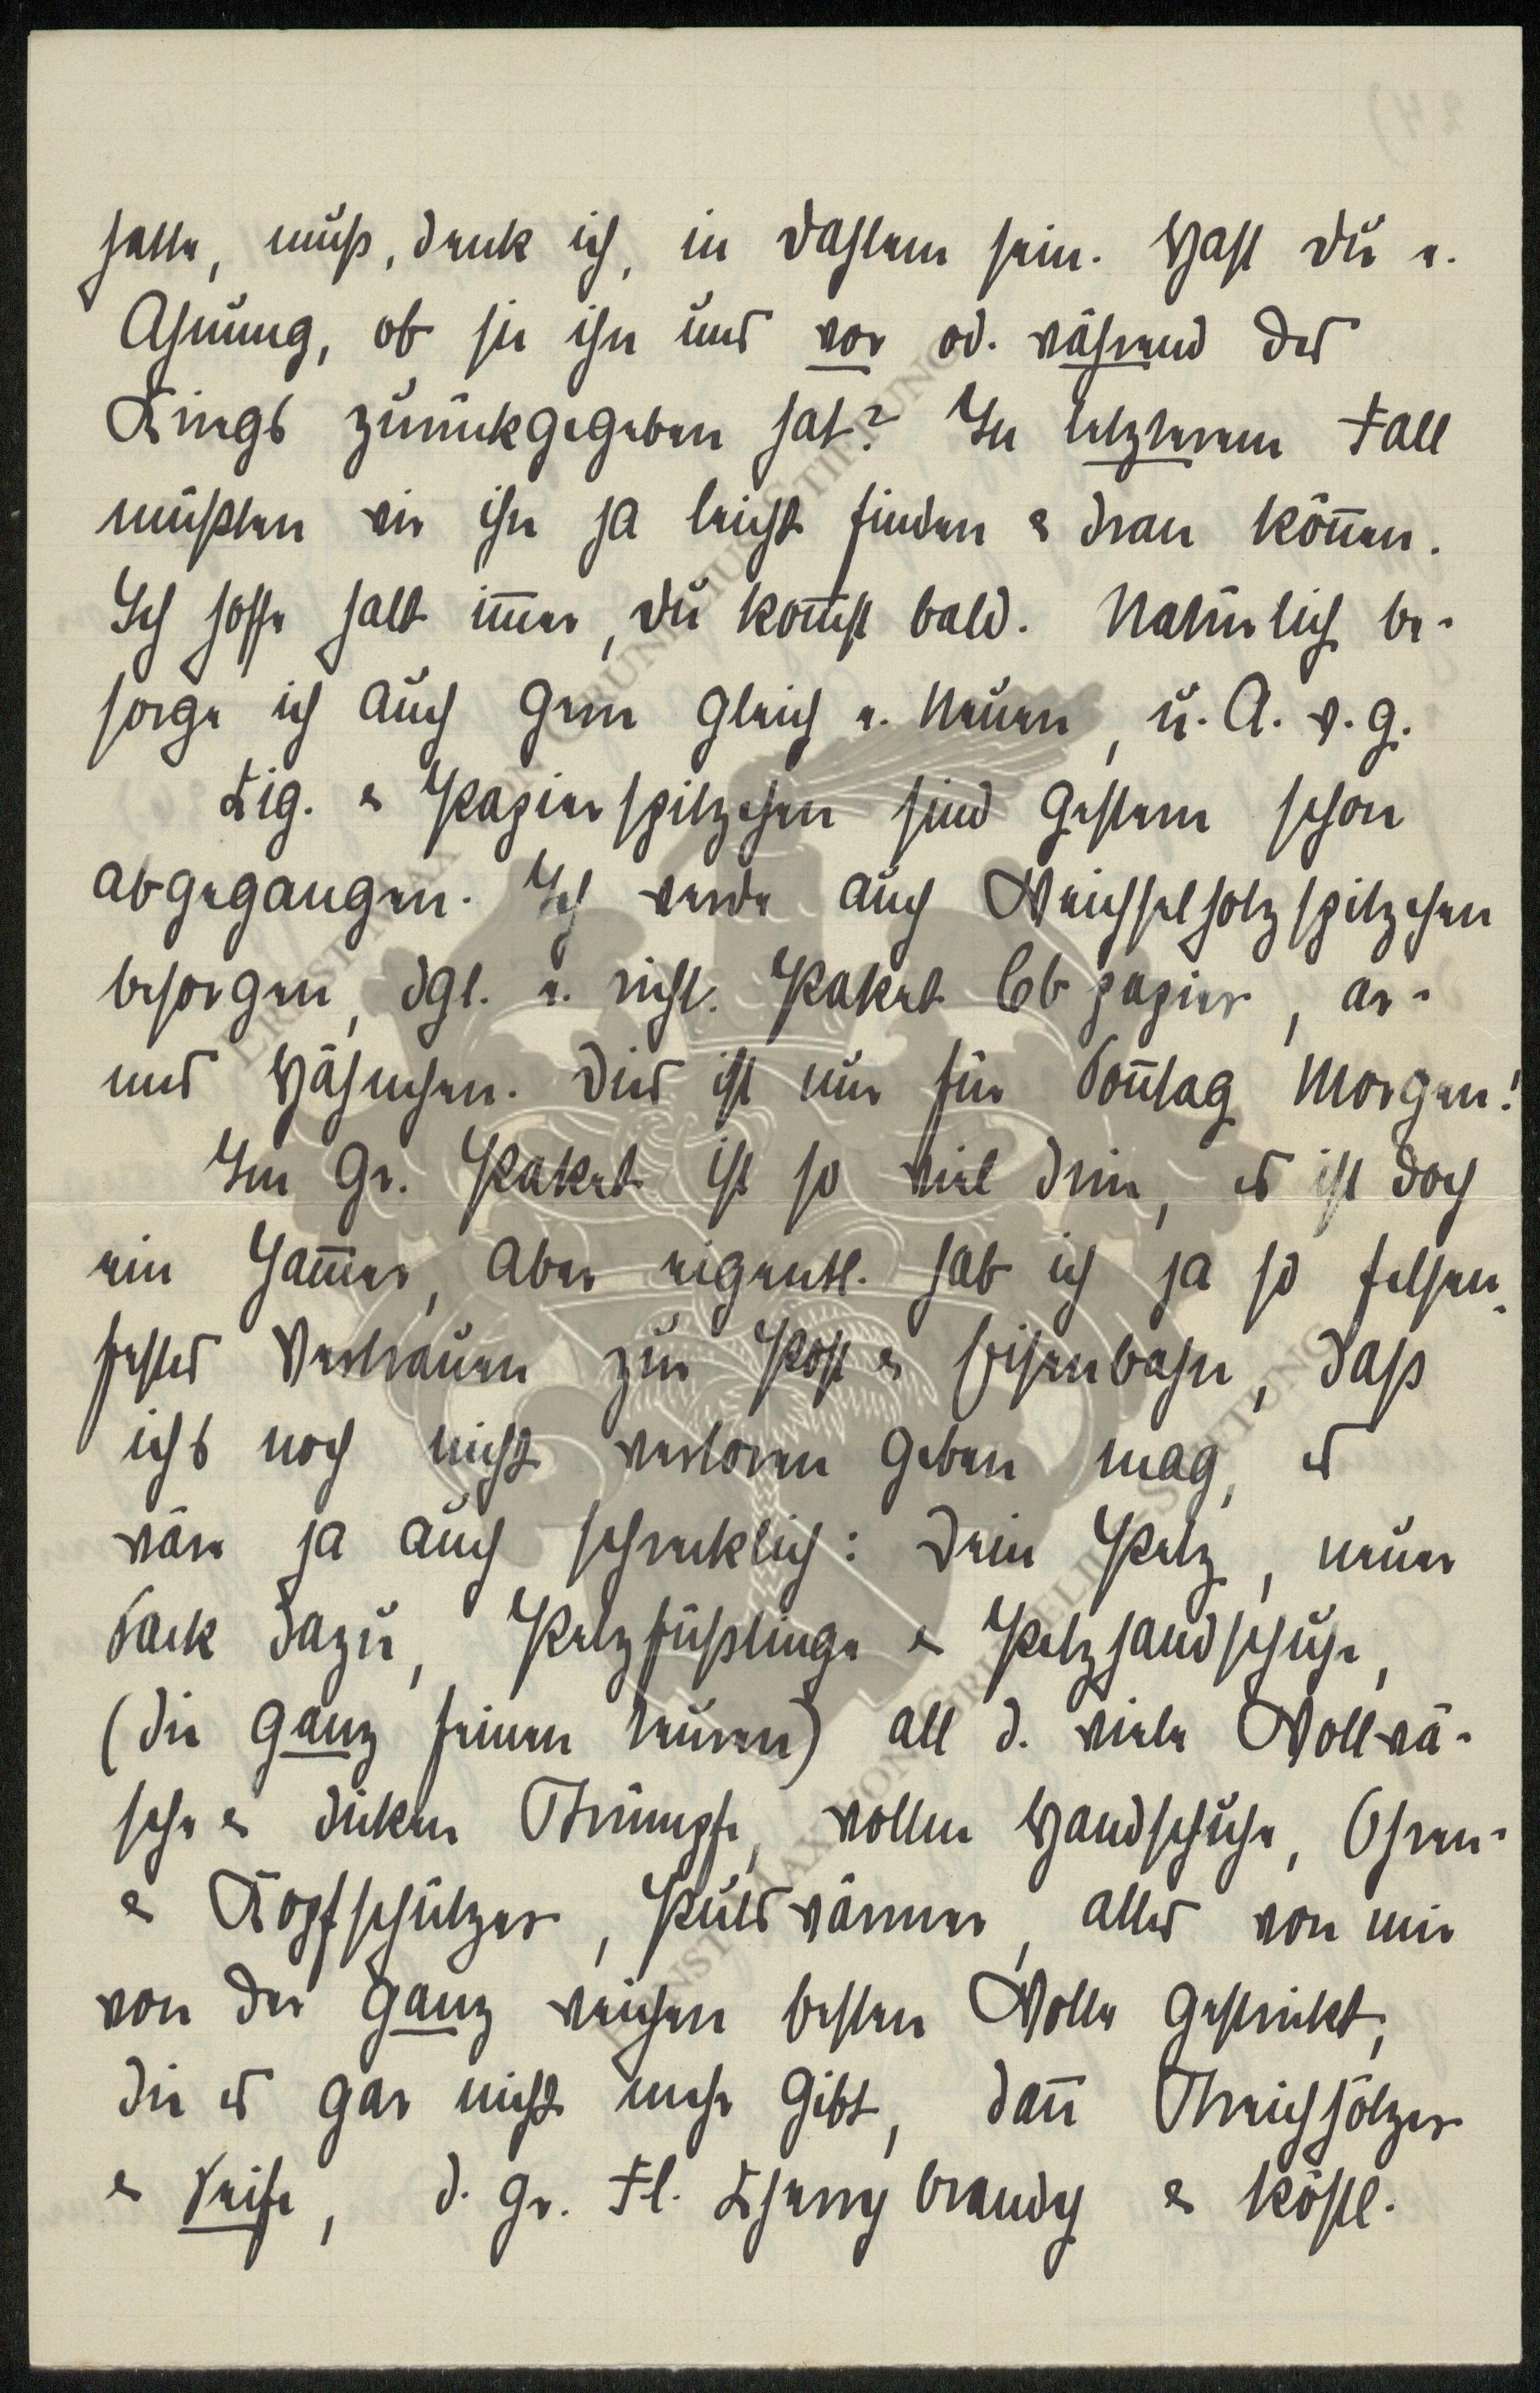 hatte, muß, denk ich, in Dahlem sein. Hast Du e.
Ahnung, ob sie ihn uns vor od. während des
Kriegs zurückgegeben hat? In letzterem Fall
müßten wir ihn ja leicht finden & dran können.
Ich hoffe halt im̄er, Du kom̄st bald. Natürlich be-
sorge ich auch gern gleich e. neuen, u. A. w. g.
Zig. & Papierspitzchen sind gestern schon
abgegangen. Ich werde auch Weichselholzspitzchen
besorgen, dgl. e. richt. Paket Cbpapier, ar-
mes Hähnchen. Dies ist nur für Son̄tag Morgen!
Im gr. Paket ist so viel drin, es ist doch
ein Jam̄er, aber eigentl. hab ich ja so felsen-
festes Vertrauen zur Post & Eisenbahn, daß
ichs noch nicht verloren geben mag, es
wäre ja auch schrecklich: Dein Pelz, neuer
Sack dazu, Pelzfüßlinge & Pelzhandschuhe,
(die ganz feinen teuren) all d. viele Wollwä-
sche & dicken Strümpfe, wollne Handschuhe, Ohren-
& Kopfschützer, Pulswärmer, alles von mir
von der ganz weichen besten Wolle gestrickt,
die es gar nicht mehr gibt, dan̄ Streichhölzer
& Seife, d. gr. Fl. Cherry brandy & köstl.
ERNST MAX VON GRUNELIUS-STIFTUNG
ERNST MAX VON GRUNELIUS-STIFTUNG